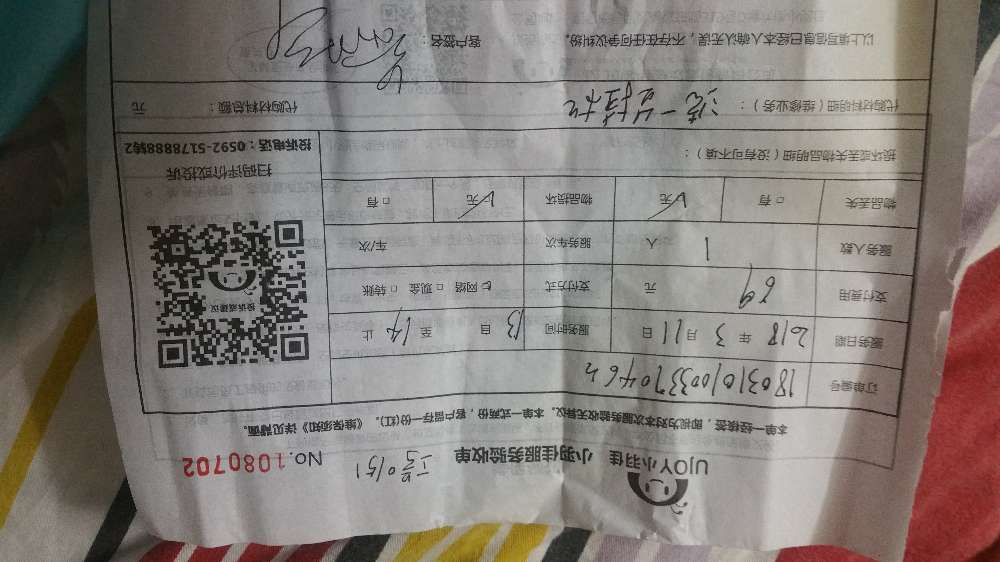 UJOY小羽佳 小羽佳服务验收单 No.1080702
本单一经核签，即视为对本次服务验收无异议。本单一式两份，客户留存一份(红)。《维保须知》详见背面。
订单编号
服务日期 2018 年 3 月 11 日 服务时间 13 自 至 14 止
支付费用 69 元 支付方式 网络 □现金 □转账
服务人数 1 人 服务车次 车/次
物品丢失 □有 无 物品损坏 无 □有
投诉或建议
扫码评价或投诉
投诉电话：0592-5178888转2
损坏或丢失物品明细（没有可不填）：
代购材料明细（维修业务）： 代购材料总额： 元
以上填写信息已经本人确认无误，不存在任何争议纠纷。 客户签名：